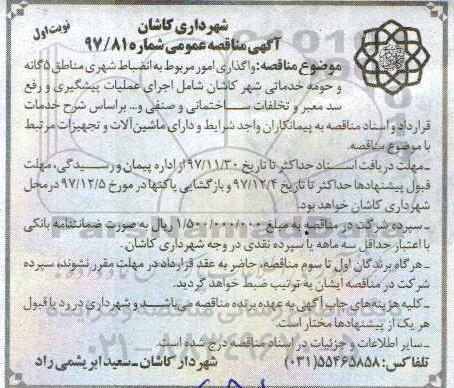 شهرداری کاشان
نوبت اول
آگهی مناقصه عمومی شماره ۹۷/۸۱
موضوع مناقصه: واگذاری امور مربوط به انضباط شهری مناطق ۵گانه
و حومه خدماتی شهر کاشان شامل اجرای عملیات پیشگیری و رفع
سد معبر و تخلفات ساختمانی و صنفی و... براساس شرح خدمات
قرارداد و اسناد مناقصه به پیمانکاران واجد شرایط و دارای ماشین‌آلات و تجهیزات مرتبط
با موضوع مناقصه.
ـ مهلت دریافت اسناد حداکثر تا تاریخ ۹۷/۱۱/۳۰ از اداره پیمان و رسیدگی، مهلت
قبول پیشنهادها حداکثر تا تاریخ ۹۷/۱۲/۴ و بازگشایی پاکتها در مورخ ۹۷/۱۲/۵ در محل
شهرداری کاشان خواهد بود.
ـ سپرده شرکت در مناقصه به مبلغ ۱/۵۰۰/۰۰۰/۰۰۰ ریال به صورت ضمانتنامه بانکی
با اعتبار حداقل سه ماهه یا سپرده نقدی در وجه شهرداری کاشان.
ـ هرگاه برندگان اول تا سوم مناقصه، حاضر به عقد قرارداد در مهلت مقرر نشوند، سپرده
شرکت در مناقصه ایشان به ترتیب ضبط خواهد گردید.
ـ کلیه هزینه‌های چاپ آگهی به عهده برنده مناقصه می‌باشد و شهرداری در رد یا قبول
هر یک از پیشنهادها مختار است.
ـ سایر اطلاعات و جزئیات در اسناد مناقصه درج شده است.
تلفاکس: ۵۵۴۶۵۸۵۸(۰۳۱) شهردار کاشان ـ سعید ابریشمی راد